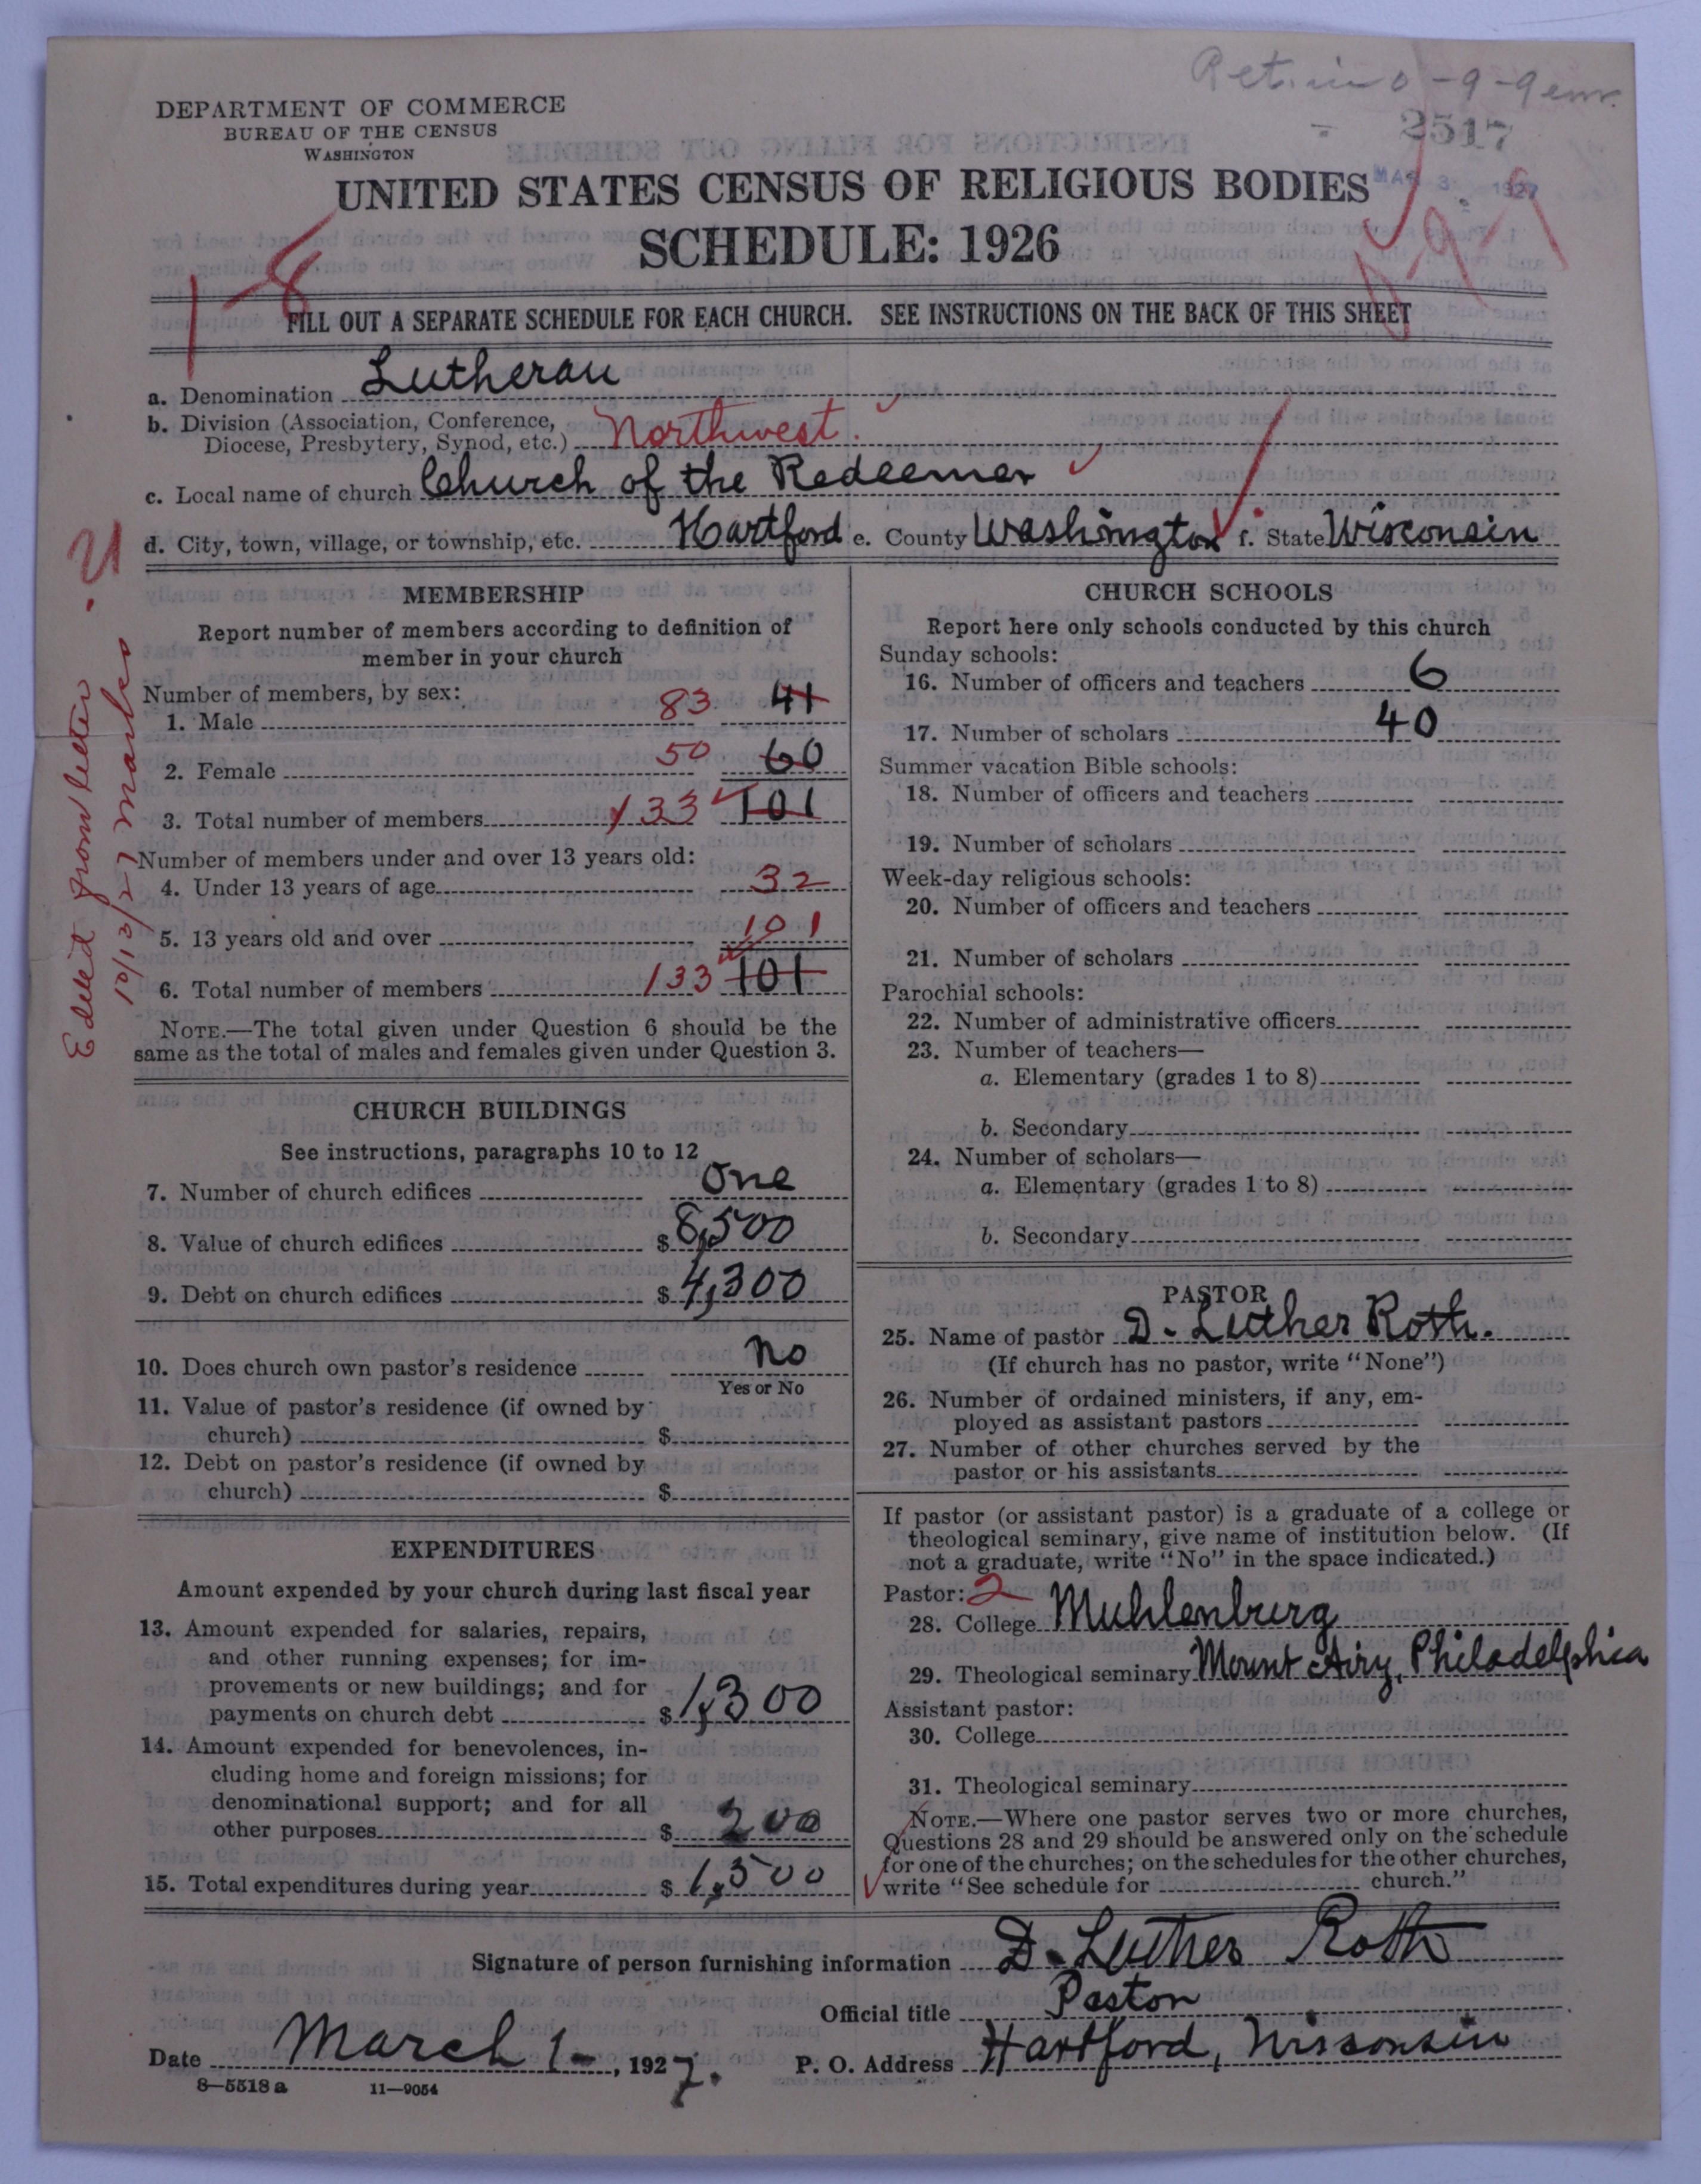 DEPARTMENT OF COMMERCE
BUREAU OF THE CENSUS
WASHINGTON
2517
MAR 3 1927
UNITED STATES CENSUS OF RELIGIOUS BODIES
SCHEDULE: 1926
1-8
FILL OUT A SEPARATE SCHEDULE FOR EACH CHURCH. SEE INSTRUCTIONS ON THE BACK OF THIS SHEET
a. Denomination Lutheran
b. Division (Association, Conference,
Diocese, Presbytery, Synod, etc.) Northwest.
c. Local name of church Church of the Redeemer
d. City, town, village, or township, etc. Hartford e. County Washington f. State Wisconsin
Edited from letter
10/13/27
MEMBERSHIP
Report number of members according to definition of
member in your church
Number of members, by sex:
1. Male 83 41
2. Female 50 60
3. Total number of members 133 101
Number of members under and over 13 years old:
4. Under 13 years of age 32
5. 13 years old and over 101
6. Total number of members 133 101
NOTE.—The total given under Question 6 should be the
same as the total of males and females given under Question 3.
CHURCH BUILDINGS
See instructions, paragraphs 10 to 12
7. Number of church edifices One
8. Value of church edifices $ 8,500
9. Debt on church edifices $ 4,300
10. Does church own pastor's residence No
Yes or No
11. Value of pastor's residence (if owned by
church) $
12. Debt on pastor's residence (if owned by
church) $
EXPENDITURES
Amount expended by your church during last fiscal year
13. Amount expended for salaries, repairs,
and other running expenses; for im-
provements or new buildings; and for
payments on church debt $ 1,300
14. Amount expended for benevolences, in-
cluding home and foreign missions; for
denominational support; and for all
other purposes $ 200
15. Total expenditures during year $ 1,500
CHURCH SCHOOLS
Report here only schools conducted by this church
Sunday schools:
16. Number of officers and teachers 6
17. Number of scholars 40
Summer vacation Bible schools:
18. Number of officers and teachers
19. Number of scholars
Week-day religious schools:
20. Number of officers and teachers
21. Number of scholars
Parochial schools:
22. Number of administrative officers
23. Number of teachers—
a. Elementary (grades 1 to 8)
b. Secondary
24. Number of scholars—
a. Elementary (grades 1 to 8)
b. Secondary
PASTOR
25. Name of pastor D. Luther Roth.
(If church has no pastor, write "None")
26. Number of ordained ministers, if any, em-
ployed as assistant pastors
27. Number of other churches served by the
pastor or his assistants
If pastor (or assistant pastor) is a graduate of a college or
theological seminary, give name of institution below. (If
not a graduate, write "No" in the space indicated.)
Pastor: 2
28. College Muhlenburg
29. Theological seminary Mount Airy, Philadelphia
Assistant pastor:
30. College
31. Theological seminary
NOTE.—Where one pastor serves two or more churches,
Questions 28 and 29 should be answered only on the schedule
for one of the churches; on the schedules for the other churches,
write "See schedule for church."
Signature of person furnishing information D. Luther Roth
Official title Pastor
Date March 1-, 1927. P. O. Address Hartford, Wisconsin
8—5518 a 11—9054